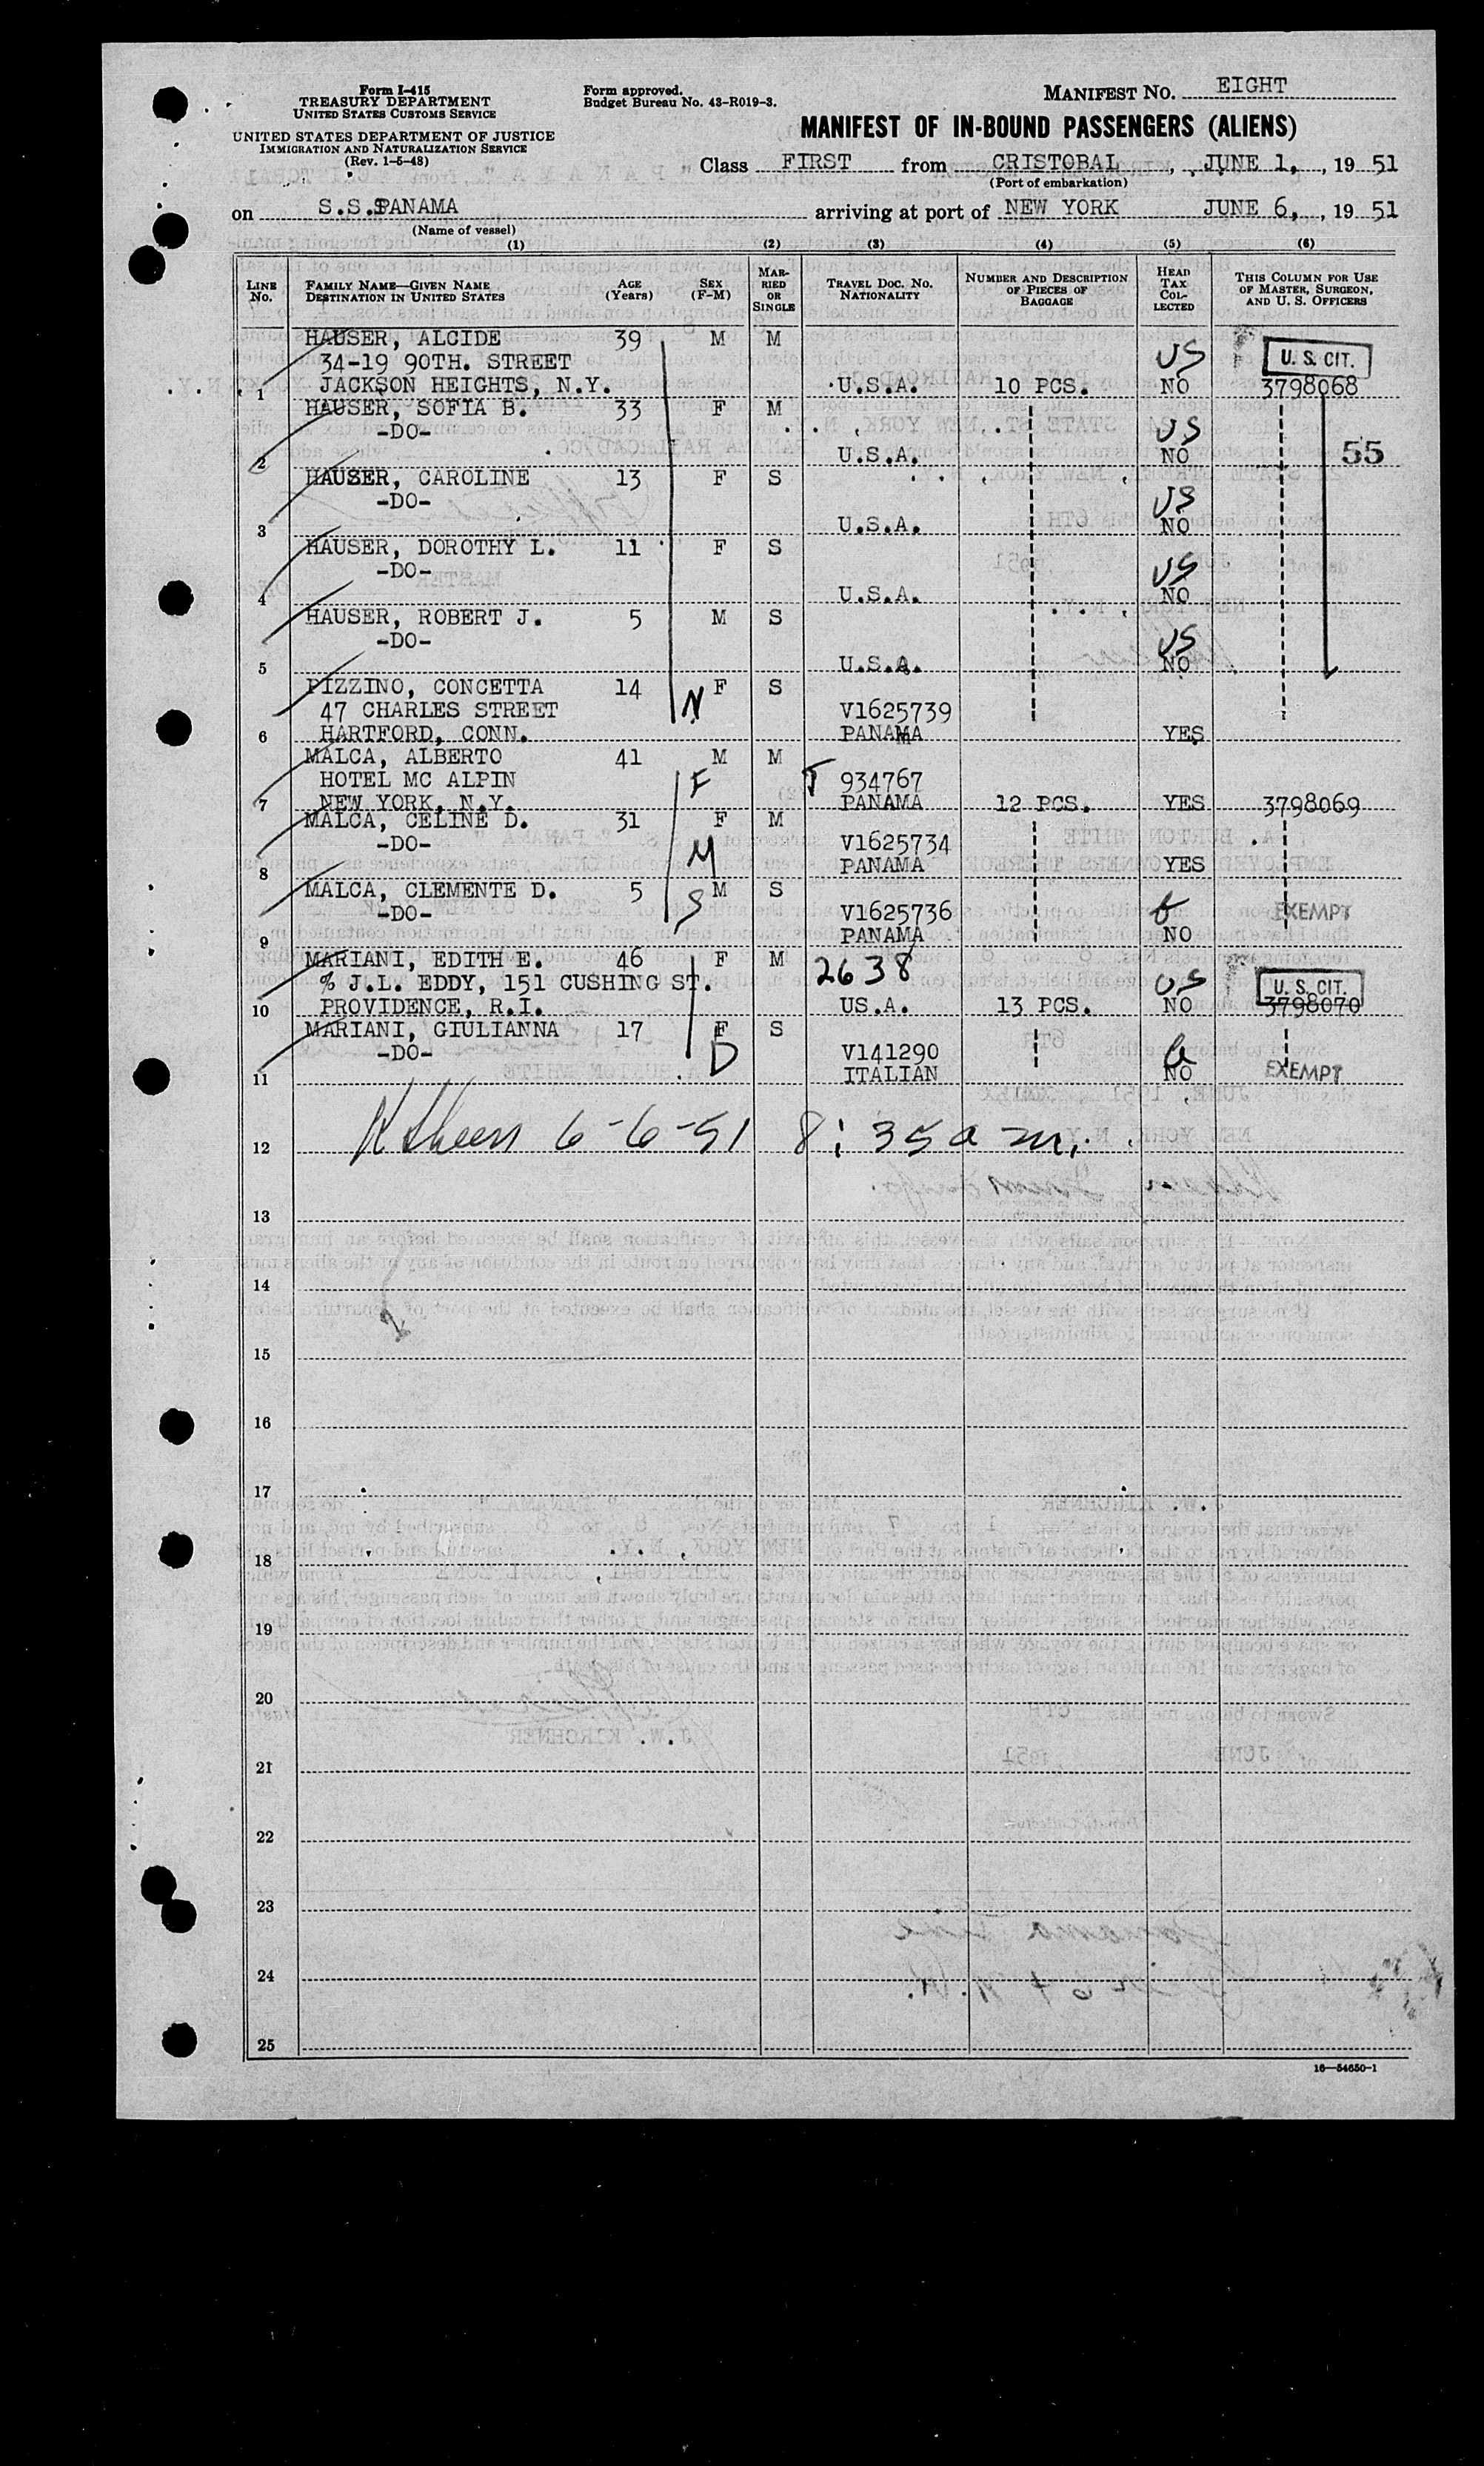 Form I-415
TREASURY DEPARTMENT
UNITED STATES CUSTOMS SERVICE
UNITED STATES DEPARTMENT OF JUSTICE
IMMIGRATION AND NATURALIZATION SERVICE
(Rev. 1-5-48)
Form approved.
Budget Bureau No. 43-R019-3.
MANIFEST NO. EIGHT
MANIFEST OF IN-BOUND PASSENGERS (ALIENS)
Class FIRST from CRISTOBAL, JUNE 1, , 19 51
(Port of embarkation)
on S.S. PANAMA arriving at port of NEW YORK JUNE 6, , 19 51
(Name of vessel)
(1) (2) (3) (4) (5) (6)
LINE No. FAMILY NAME—GIVEN NAME DESTINATION IN UNITED STATES AGE (Years) SEX (F-M) MARRIED OR SINGLE TRAVEL DOC. NO. NATIONALITY NUMBER AND DESCRIPTION OF PIECES OF BAGGAGE HEAD TAX COLLECTED THIS COLUMN FOR USE OF MASTER, SURGEON, AND U. S. OFFICERS
HAUSER, ALCIDE 39 M M
34-19 90TH. STREET US U. S. CIT.
1 JACKSON HEIGHTS, N.Y. U.S.A. 10 PCS. NO 3798068
HAUSER, SOFIA B. 33 F M
-DO- US
2 U.S.A. NO 55
HAUSER, CAROLINE 13 F S
-DO- US
3 U.S.A. NO
HAUSER, DOROTHY L. 11 F S
-DO- US
4 U.S.A. NO
HAUSER, ROBERT J. 5 M S
-DO- US
5 U.S.A. NO
PIZZINO, CONCETTA 14 N F S
47 CHARLES STREET V1625739
6 HARTFORD, CONN. PANAMA YES
MALCA, ALBERTO 41 M M
HOTEL MC ALPIN F T 934767
7 NEW YORK, N.Y. PANAMA 12 PCS. YES 3798069
MALCA, CELINE D. 31 F M
-DO- M V1625734
8 PANAMA YES
MALCA, CLEMENTE D. 5 M S
-DO- S V1625736 EXEMPT
9 PANAMA NO
MARIANI, EDITH E. 46 F M 2638
% J.L. EDDY, 151 CUSHING ST. US U. S. CIT.
10 PROVIDENCE, R.I. US.A. 13 PCS. NO 3798070
MARIANI, GIULIANNA 17 F S
-DO- D V141290
11 ITALIAN NO EXEMPT
12 6-6-51 8:35 a m.
13
14
15
16
17
18
19
20
21
22
23
24
25
16—54650-1